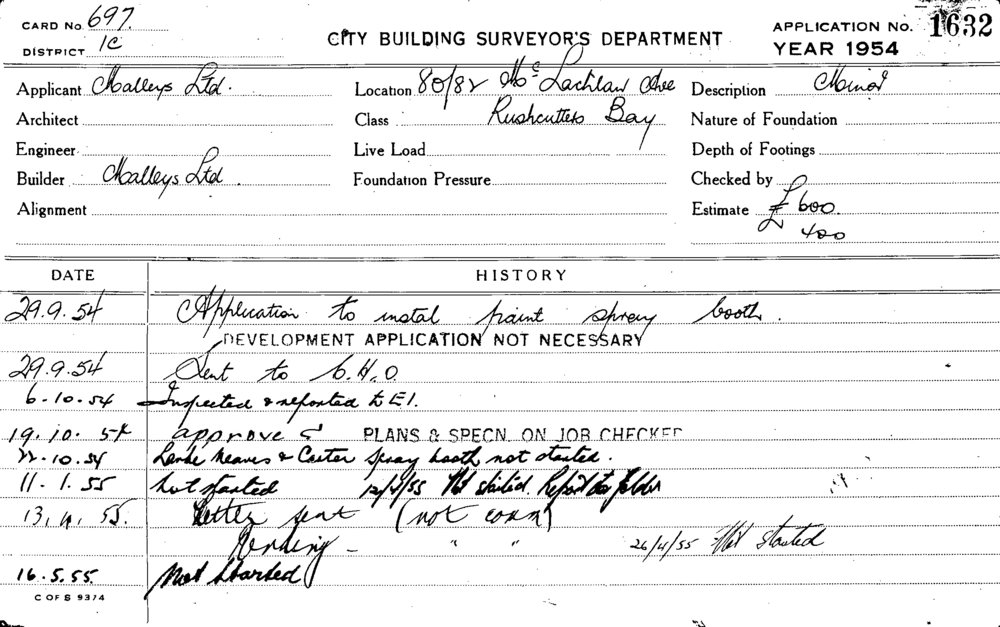 CARD No. 697.
DISTRICT 1C
CITY BUILDING SURVEYOR'S DEPARTMENT
APPLICATION No. 1632
YEAR 1954
Applicant Malleys Ltd. Location 80/82 McLachlan Ave Description Minor
Architect Class Rushcutters Bay Nature of Foundation
Engineer Live Load Depth of Footings
Builder Malleys Ltd. Foundation Pressure Checked by
Alignment Estimate £ 600.
£ 400
DATE HISTORY
29.9.54 Application to instal paint spray booth.
DEVELOPMENT APPLICATION NOT NECESSARY
29.9.54 Sent to C.H.O.
6.10.54 Inspected & reported to E1.
19.10.54 approved PLANS & SPECN. ON JOB CHECKED
10.54 & Carter Spray booth not started.
11.1.55 Not started 12/4/55 Not started. Report to folder
13.4.55. Letter sent (not comm)
Pending - " " 26/4/55 Not started
16.5.55. Not Started
C OF S 9374